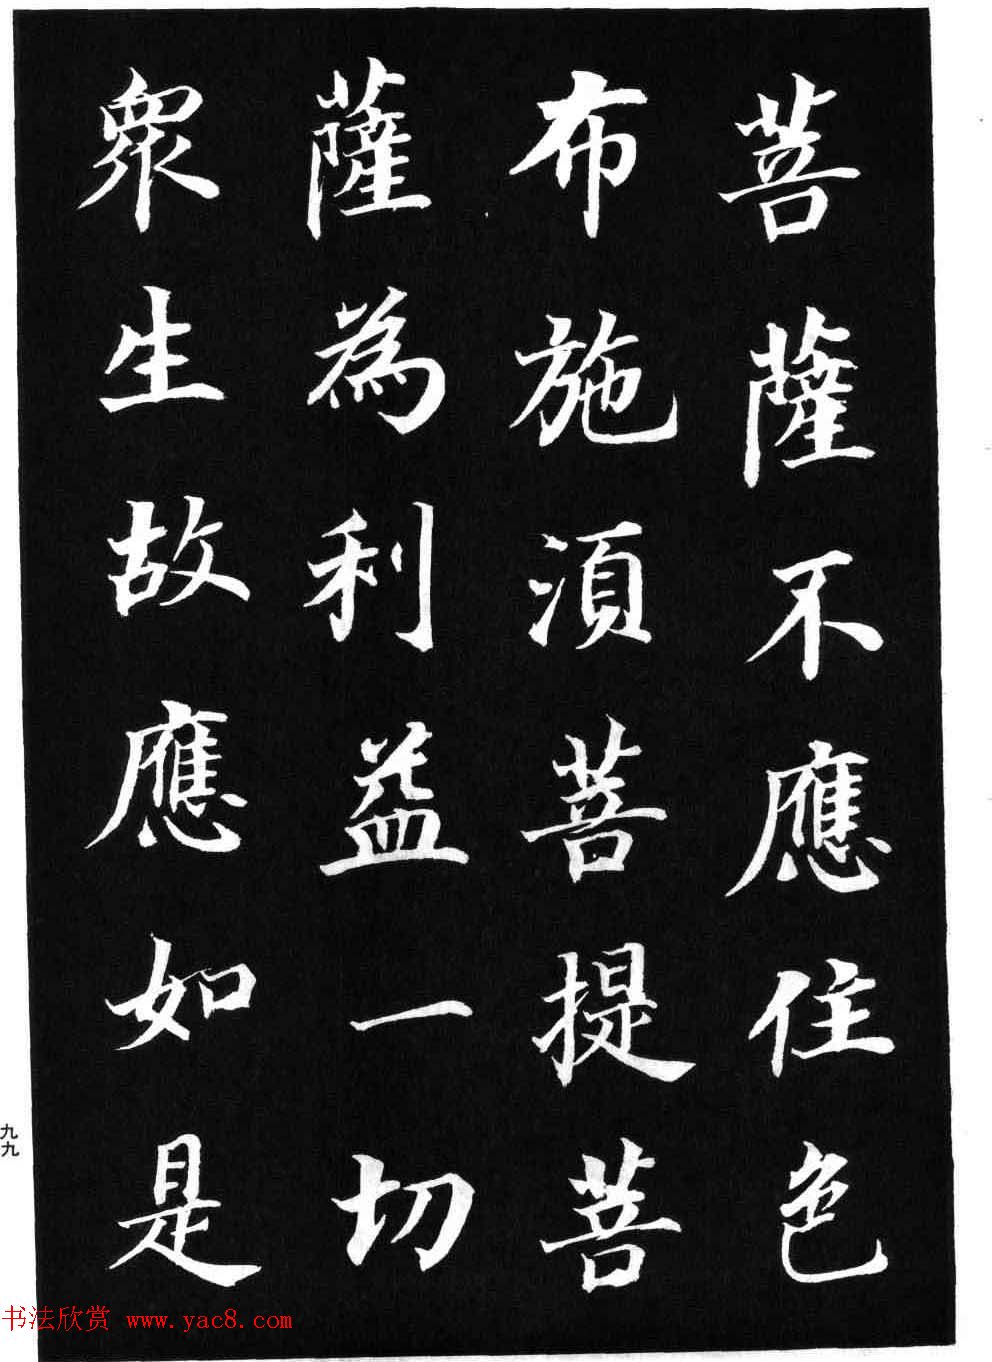 菩薩不應住色
布施湏菩提菩
薩為利益一切
衆生故應如是
九九
书法欣赏 www.yac8.com